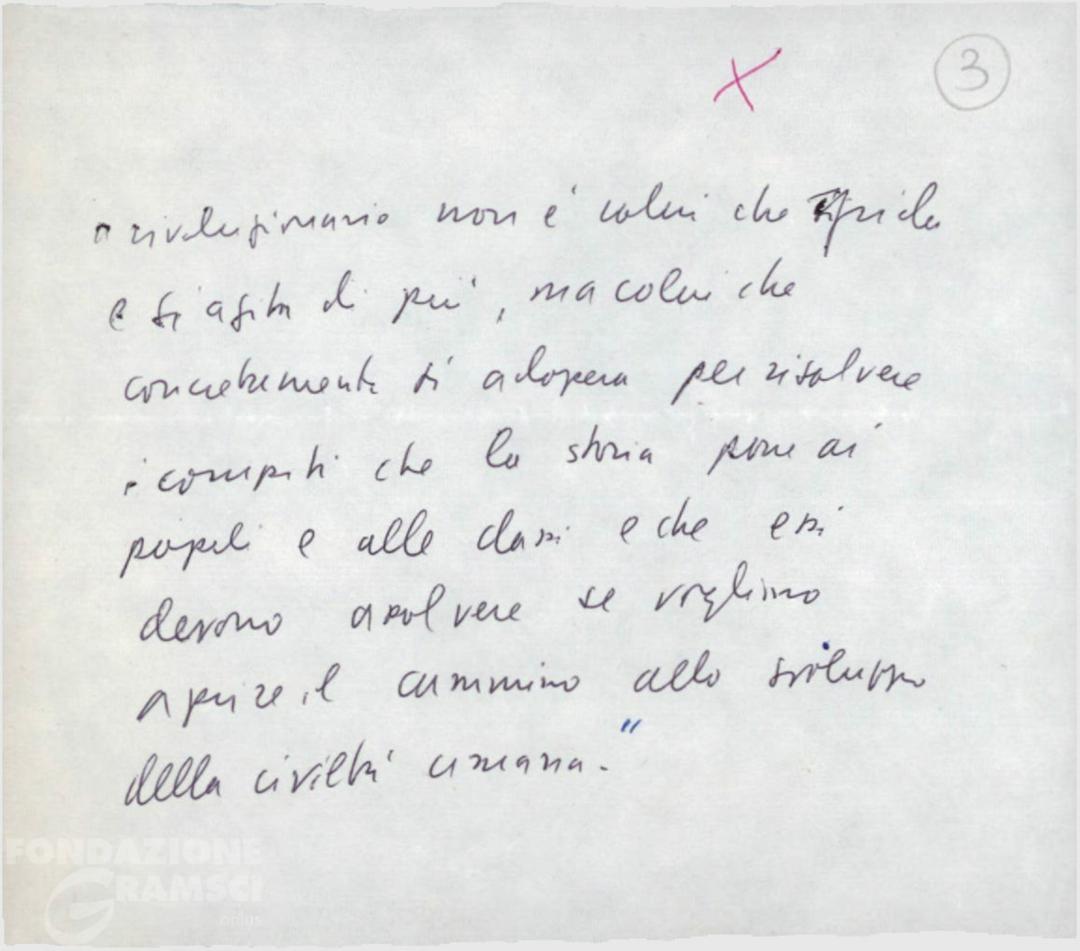 3
" rivoluzionario non è colui che grida
e si agita di più, ma colui che
concretamente si adopera per risolvere
i compiti che la storia pone ai
popoli e alle classi e che essi
devono assolvere se vogliono
aprire il cammino allo sviluppo
della civiltà umana."
FONDAZIONE
GRAMSCI
onlus